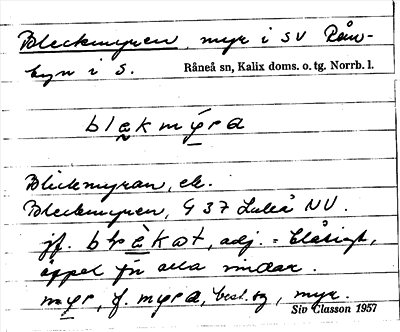 Bleckmyren, myr i SV Rån-
byn i S. Råneå sn, Kalix doms. o. tg. Norrb. l.
Bleckmyran, ek.
Bleckmyren, G 37 Luleå NV.
jf. adj. = blåsigt,
öppet för alla vindar.
f. best. sg, myr.
Siv Classon 1957